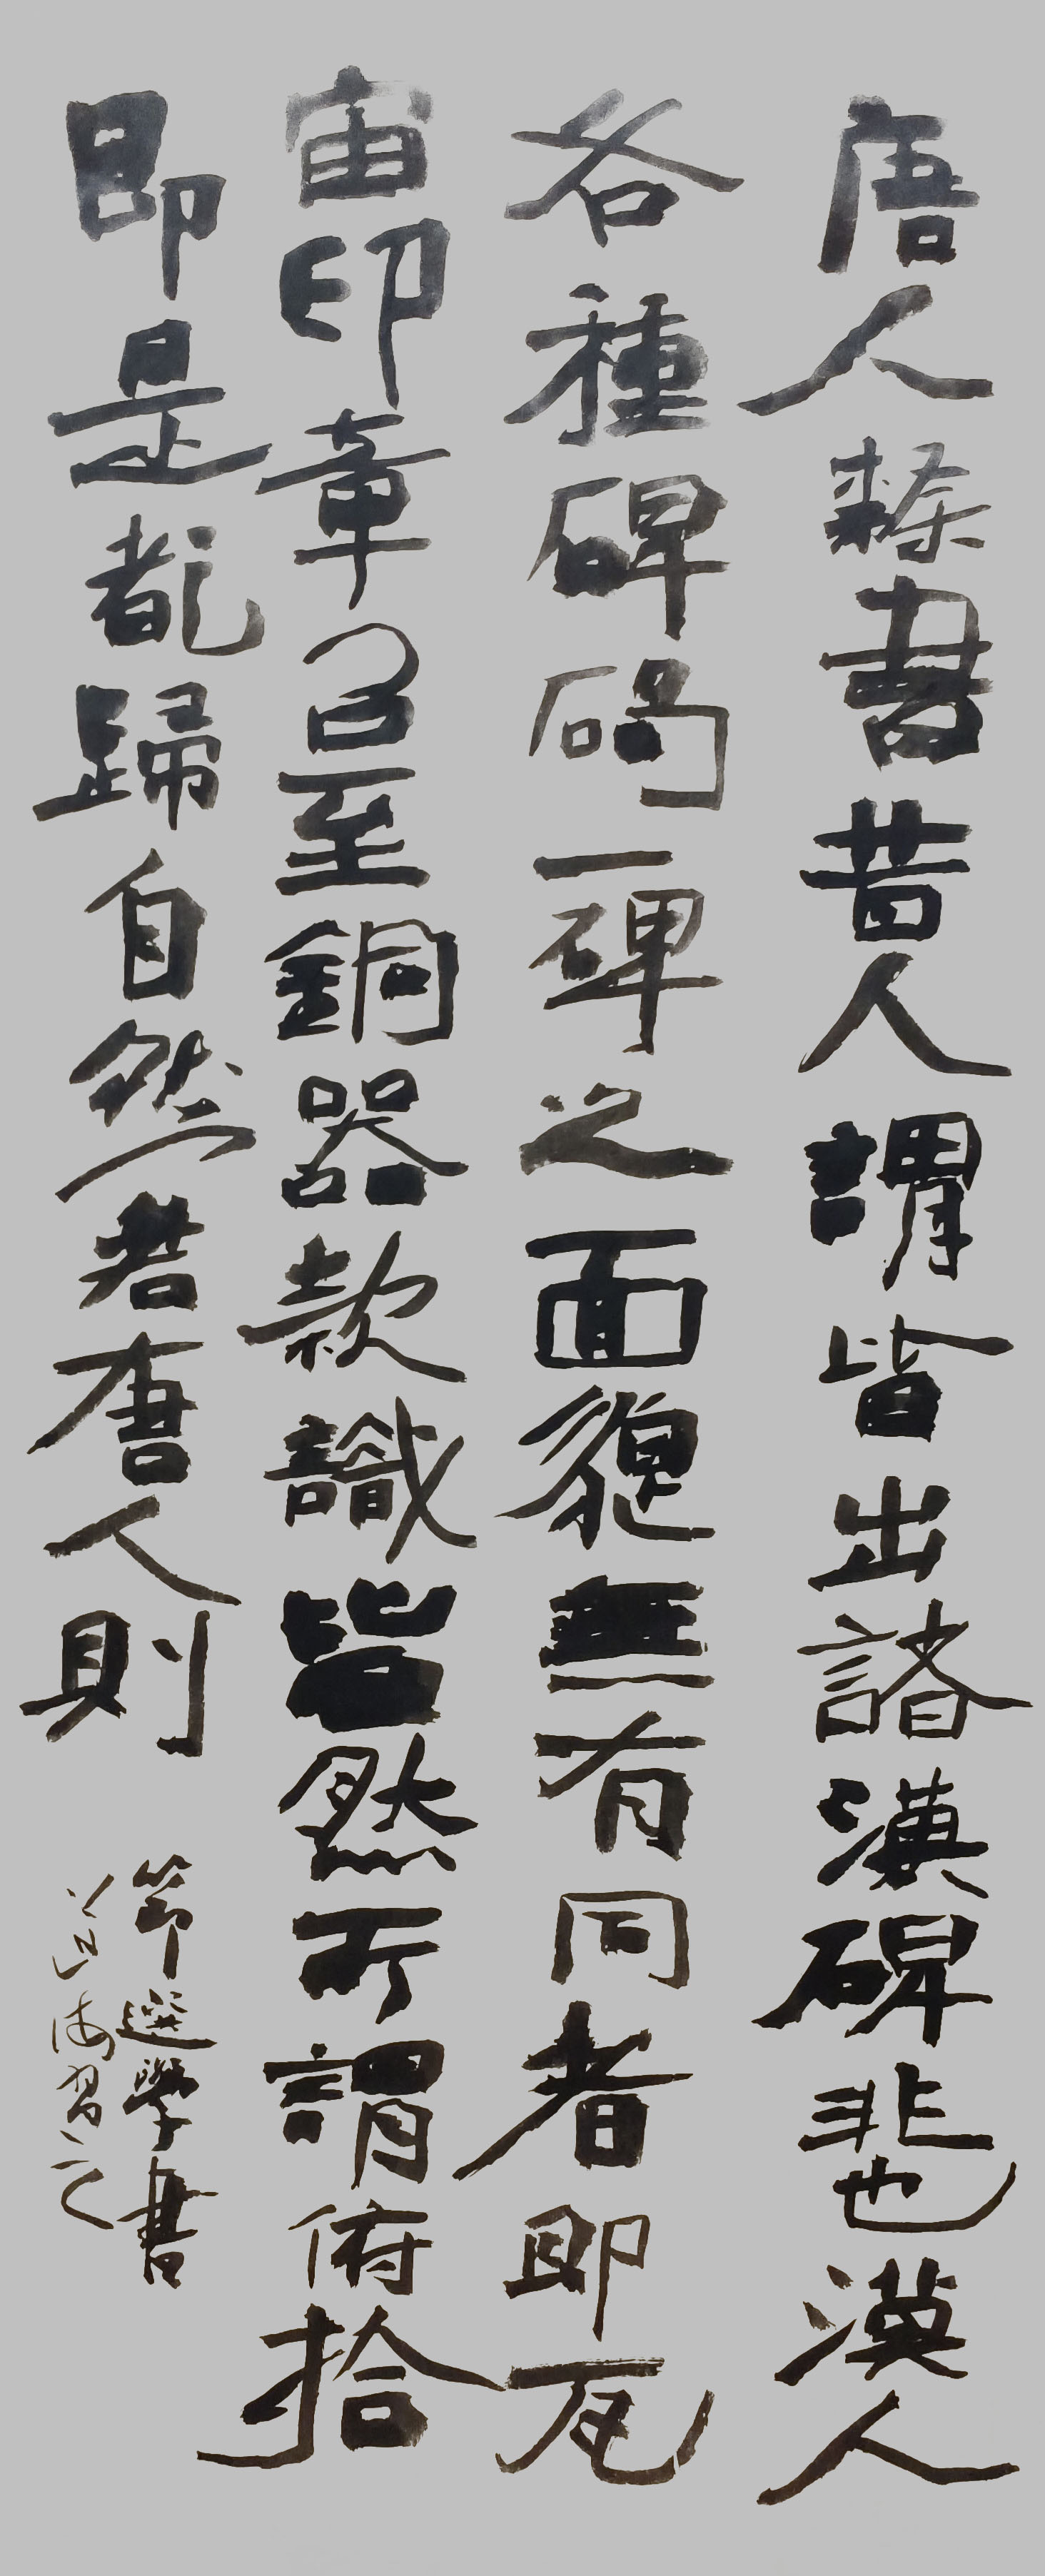 唐人隸書昔人謂皆出諸漢碑非也漢人
各種碑碣一碑之面貌無有同者即瓦
甯印章以至銅器款識皆然所謂俯拾
即是都歸自然者唐人則
節選學書
道海習之